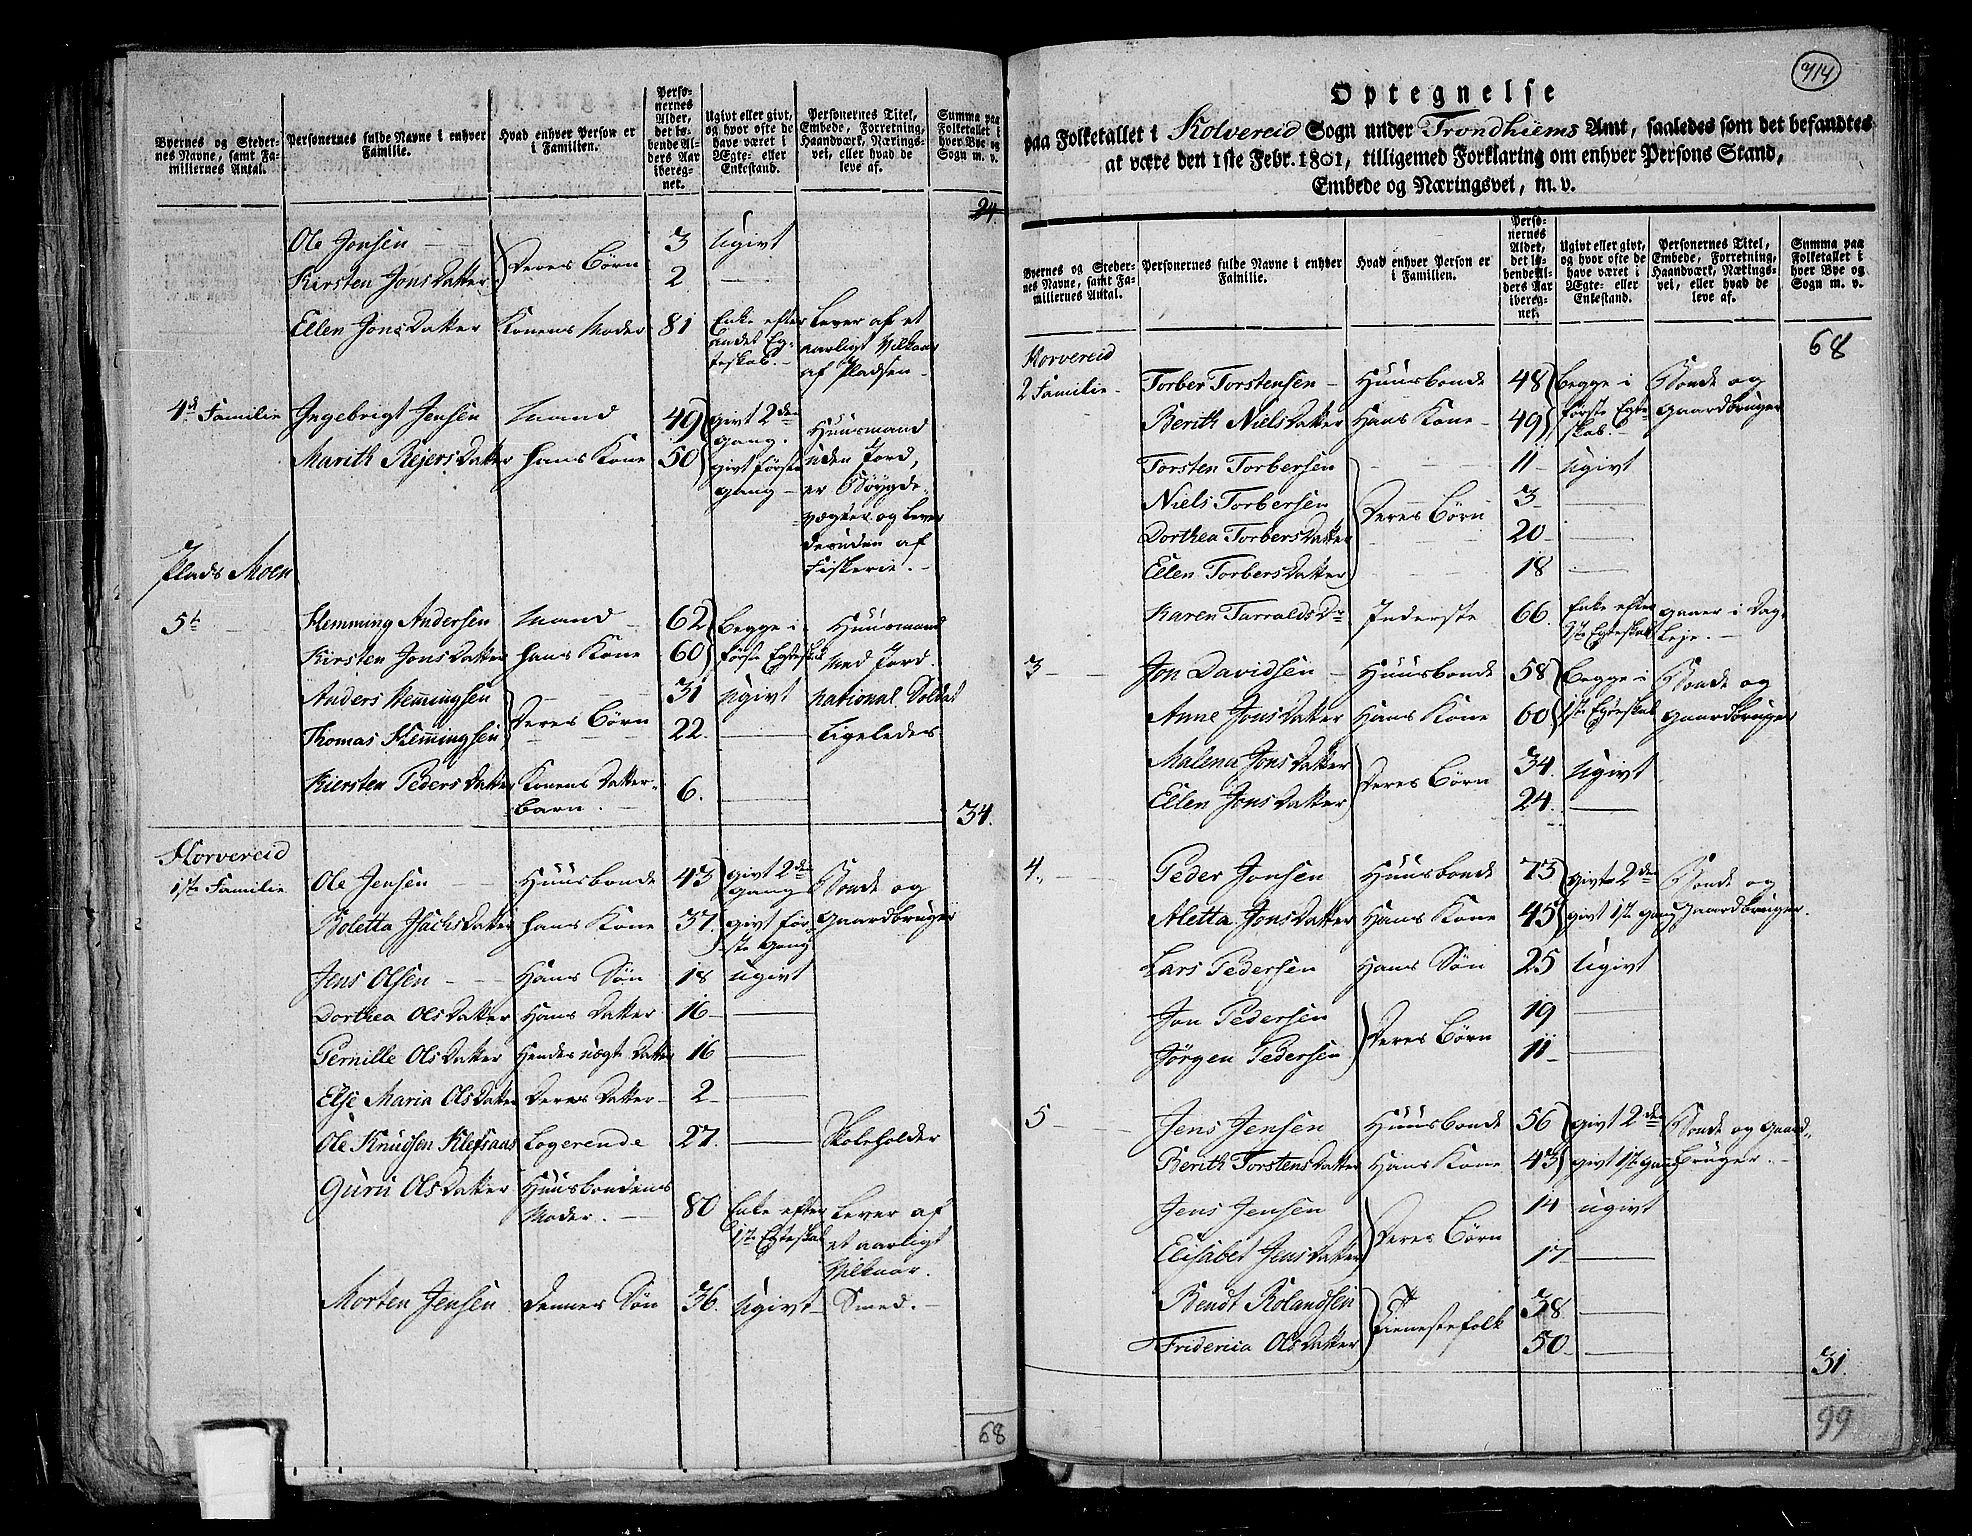 Byernes og Stedernes Navne, samt Familiernes Antal.
Personernes fulde Navne i enhver Familie.
Hvad enhver Person er i Familien.
Personernes Alder, det løbende Alders Aar iberegnet.
Ugivt eller givt, og hvor ofte de have været i Ægte- eller Enkestand.
Personernes Titel, Embede, Forretning, Haandværk, Næringsvei, eller hvad de leve af.
Summa paa Folketallet i hver Bye og Sogn m. v.
24.
Ole Jonsen 3 Ugivt
Kirsten Jons Datter Deres Børn 2
Ellen Jons Datter Konens Moder 81 Enke efter andet Egteskab. Lever af et aarligt Vilkaar af Pladsen
4de Familie Ingebrigt Jensen Mand 49 givt 2den gang. Huusmand uden Jord,
Marith Rejers Datter Hans Kone 50 givt første gang er Bøygdevægter og lever desuden af Fiskerie.
Plads Moen
5t Hemming Andersen Mand 62 Begge i Huusmand
Kirsten Jons Datter Hans Kone 60 første Egteskab med Jord.
Anders Hemingsen 31 Ugivt national Soldat
Thomas Hemingsen Deres Børn 22. Ligeledes
Kiersten Peders Datter Konens Datterbarn. 6.
34.
Horvereid
1ste Familie Ole Jensen Huusbonde 43 givt 2den gang Bonde og
Boletta Isachs Datter Hans Kone 37. givt første gang Gaardbruger
Jens Olsen Hans Søn 18 Ugivt
Dorthea Ols Datter Hans Datter 16
Pernille Ols Datter Hendes uægte Datter 16
Else Maria Ols Datter Deres Datter 2
Ole Knudsen Klefsaas Logerende 27. Skoleholder
Guru Ols Datter Huusbondens Moder. 80 Enke efter 1ste Egteskab Lever af et aarligt Vilkaar.
Morten Jensen Dennes Søn 36. Ugivt Smed.
68
714
Optegnelse
paa Folketallet i Kolvereid Sogn under Trondhiems Amt, saaledes som det befandtes
at være den 1ste Febr. 1801, tilligemed Forklaring om enhver Persons Stand,
Embede og Næringsvei, m. v.
Byernes og Stedernes Navne, samt Familiernes Antal.
Personernes fulde Navne i enhver Familie.
Hvad enhver Person er i Familien.
Personernes Alder, det løbende Alders Aar iberegnet.
Ugivt eller givt, og hvor ofte de have været i Ægte- eller Enkestand.
Personernes Titel, Embede, Forretning, Haandværk, Næringsvei, eller hvad de leve af.
Summa paa Folketallet i hver Bye og Sogn m. v.
68
Horvereid
2 Familie Torber Torstensen Huusbonde 48 Begge i Bonde og
Berith Niels Datter Hans Kone 49 første Egteskab. Gaardbruger
Torsten Torbersen 11 Ugivt
Niels Torbersen Deres Børn 3
Dorthea Torbers Datter 20
Ellen Torbers Datter 18
Karen Tarralds Dr Inderste 66. Enke efter 1ste Egteskab Gaaer i Dagleje.
3 Jon Davidsen Huusbonde 58 Begge i Bonde og
Anne Jons Datter Hans Kone 60 1ste Egteskab Gaardbruger
Malena Jons Datter Deres Børn 34. Ugivt
Ellen Jons Datter 24.
4. Peder Jonsen Huusbonde 73 givt 2den Bonde og
Aletta Jons Datter Hans Kone 45 givt 1ste gang Gaardbruger.
Lars Pedersen Hans Søn 25 Ugivt
Jon Pedersen Deres Børn 19
Jørgen Pedersen 11
5 Jens Jensen Huusbonde 56 givt 2den Bonde og Gaard-
Berith Torstens Datter Hans Kone 43 givt 1ste gang bruger.
Jens Jensen Deres Børn 14 Ugivt
Elisabet Jens Datter 17
Bendt Rolandsen Tienestefolk 38
Fridericia Ols Datter 50
31.
99